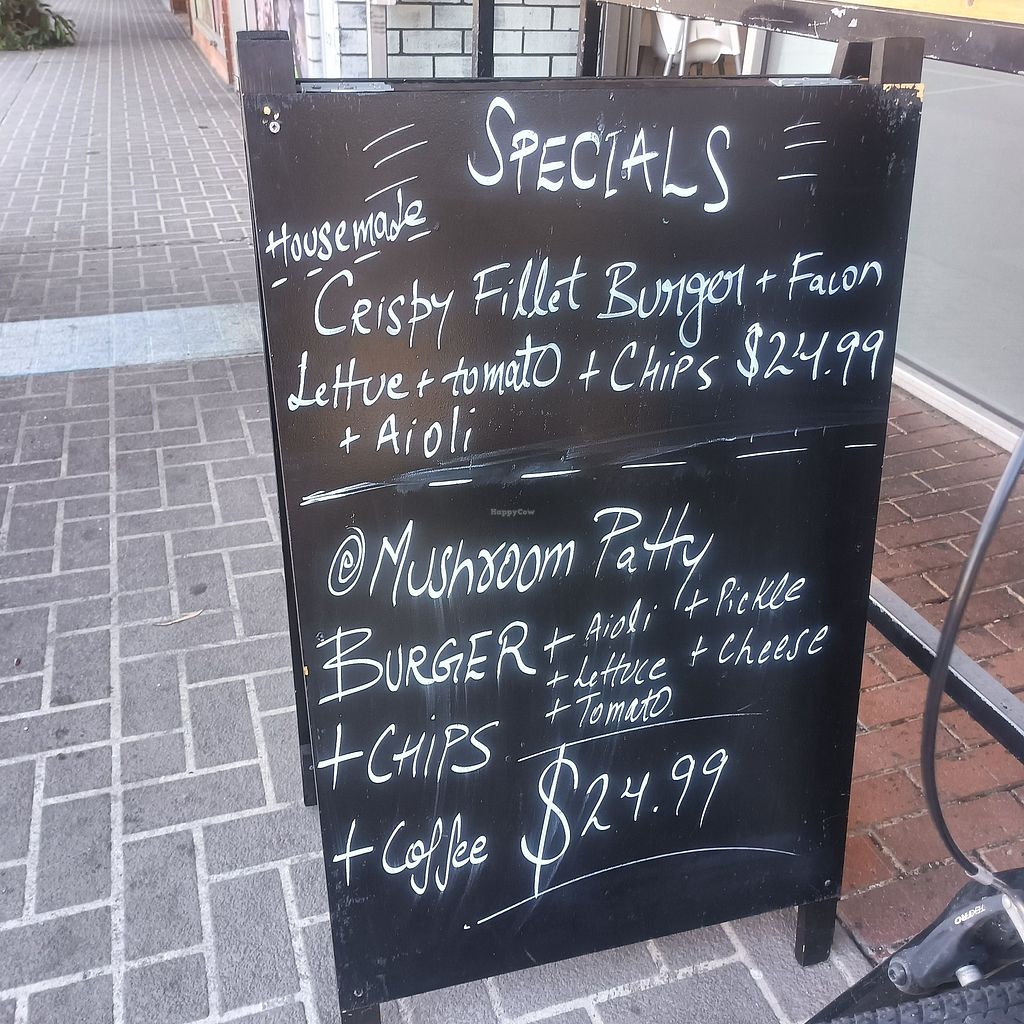 SPECIALS
Housemade
Crispy Fillet Burger + Facon
Lettue + tomato + Chips $24.99
+ Aioli
HappyCow
@ Mushroom Patty
BURGER + Aioli + Pickle
+ Lettuce + Cheese
+ Tomato
+ CHIPS
+ Coffee $24.99
TEKTRO